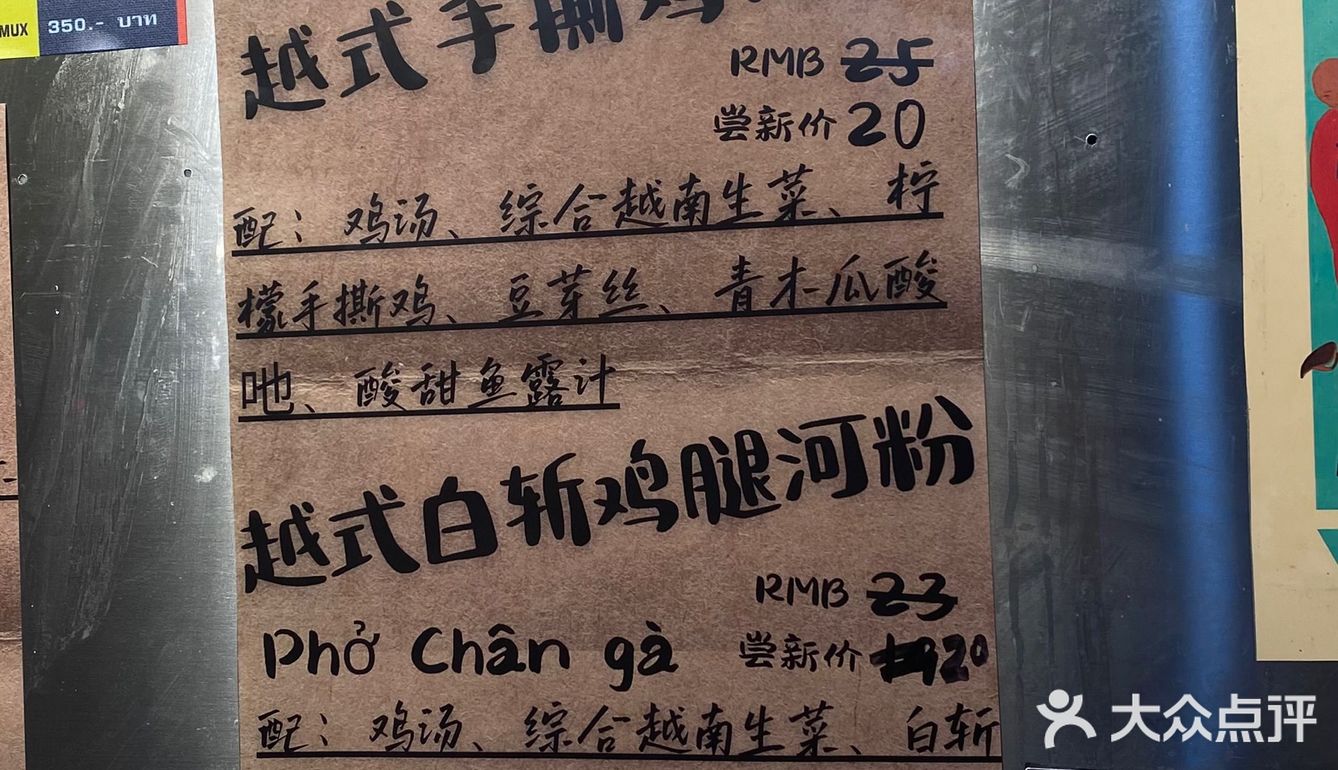 MUX
350.- บาท
越式手撕鸡
RMB 25
尝新价 20
配: 鸡汤、综合越南生菜、柠
檬手撕鸡、豆芽丝、青木瓜酸
吔、酸甜鱼露汁
越式白斩鸡腿河粉
RMB 23
Phở Chân gà
尝新价 20
配: 鸡汤、综合越南生菜、白斩
大众点评